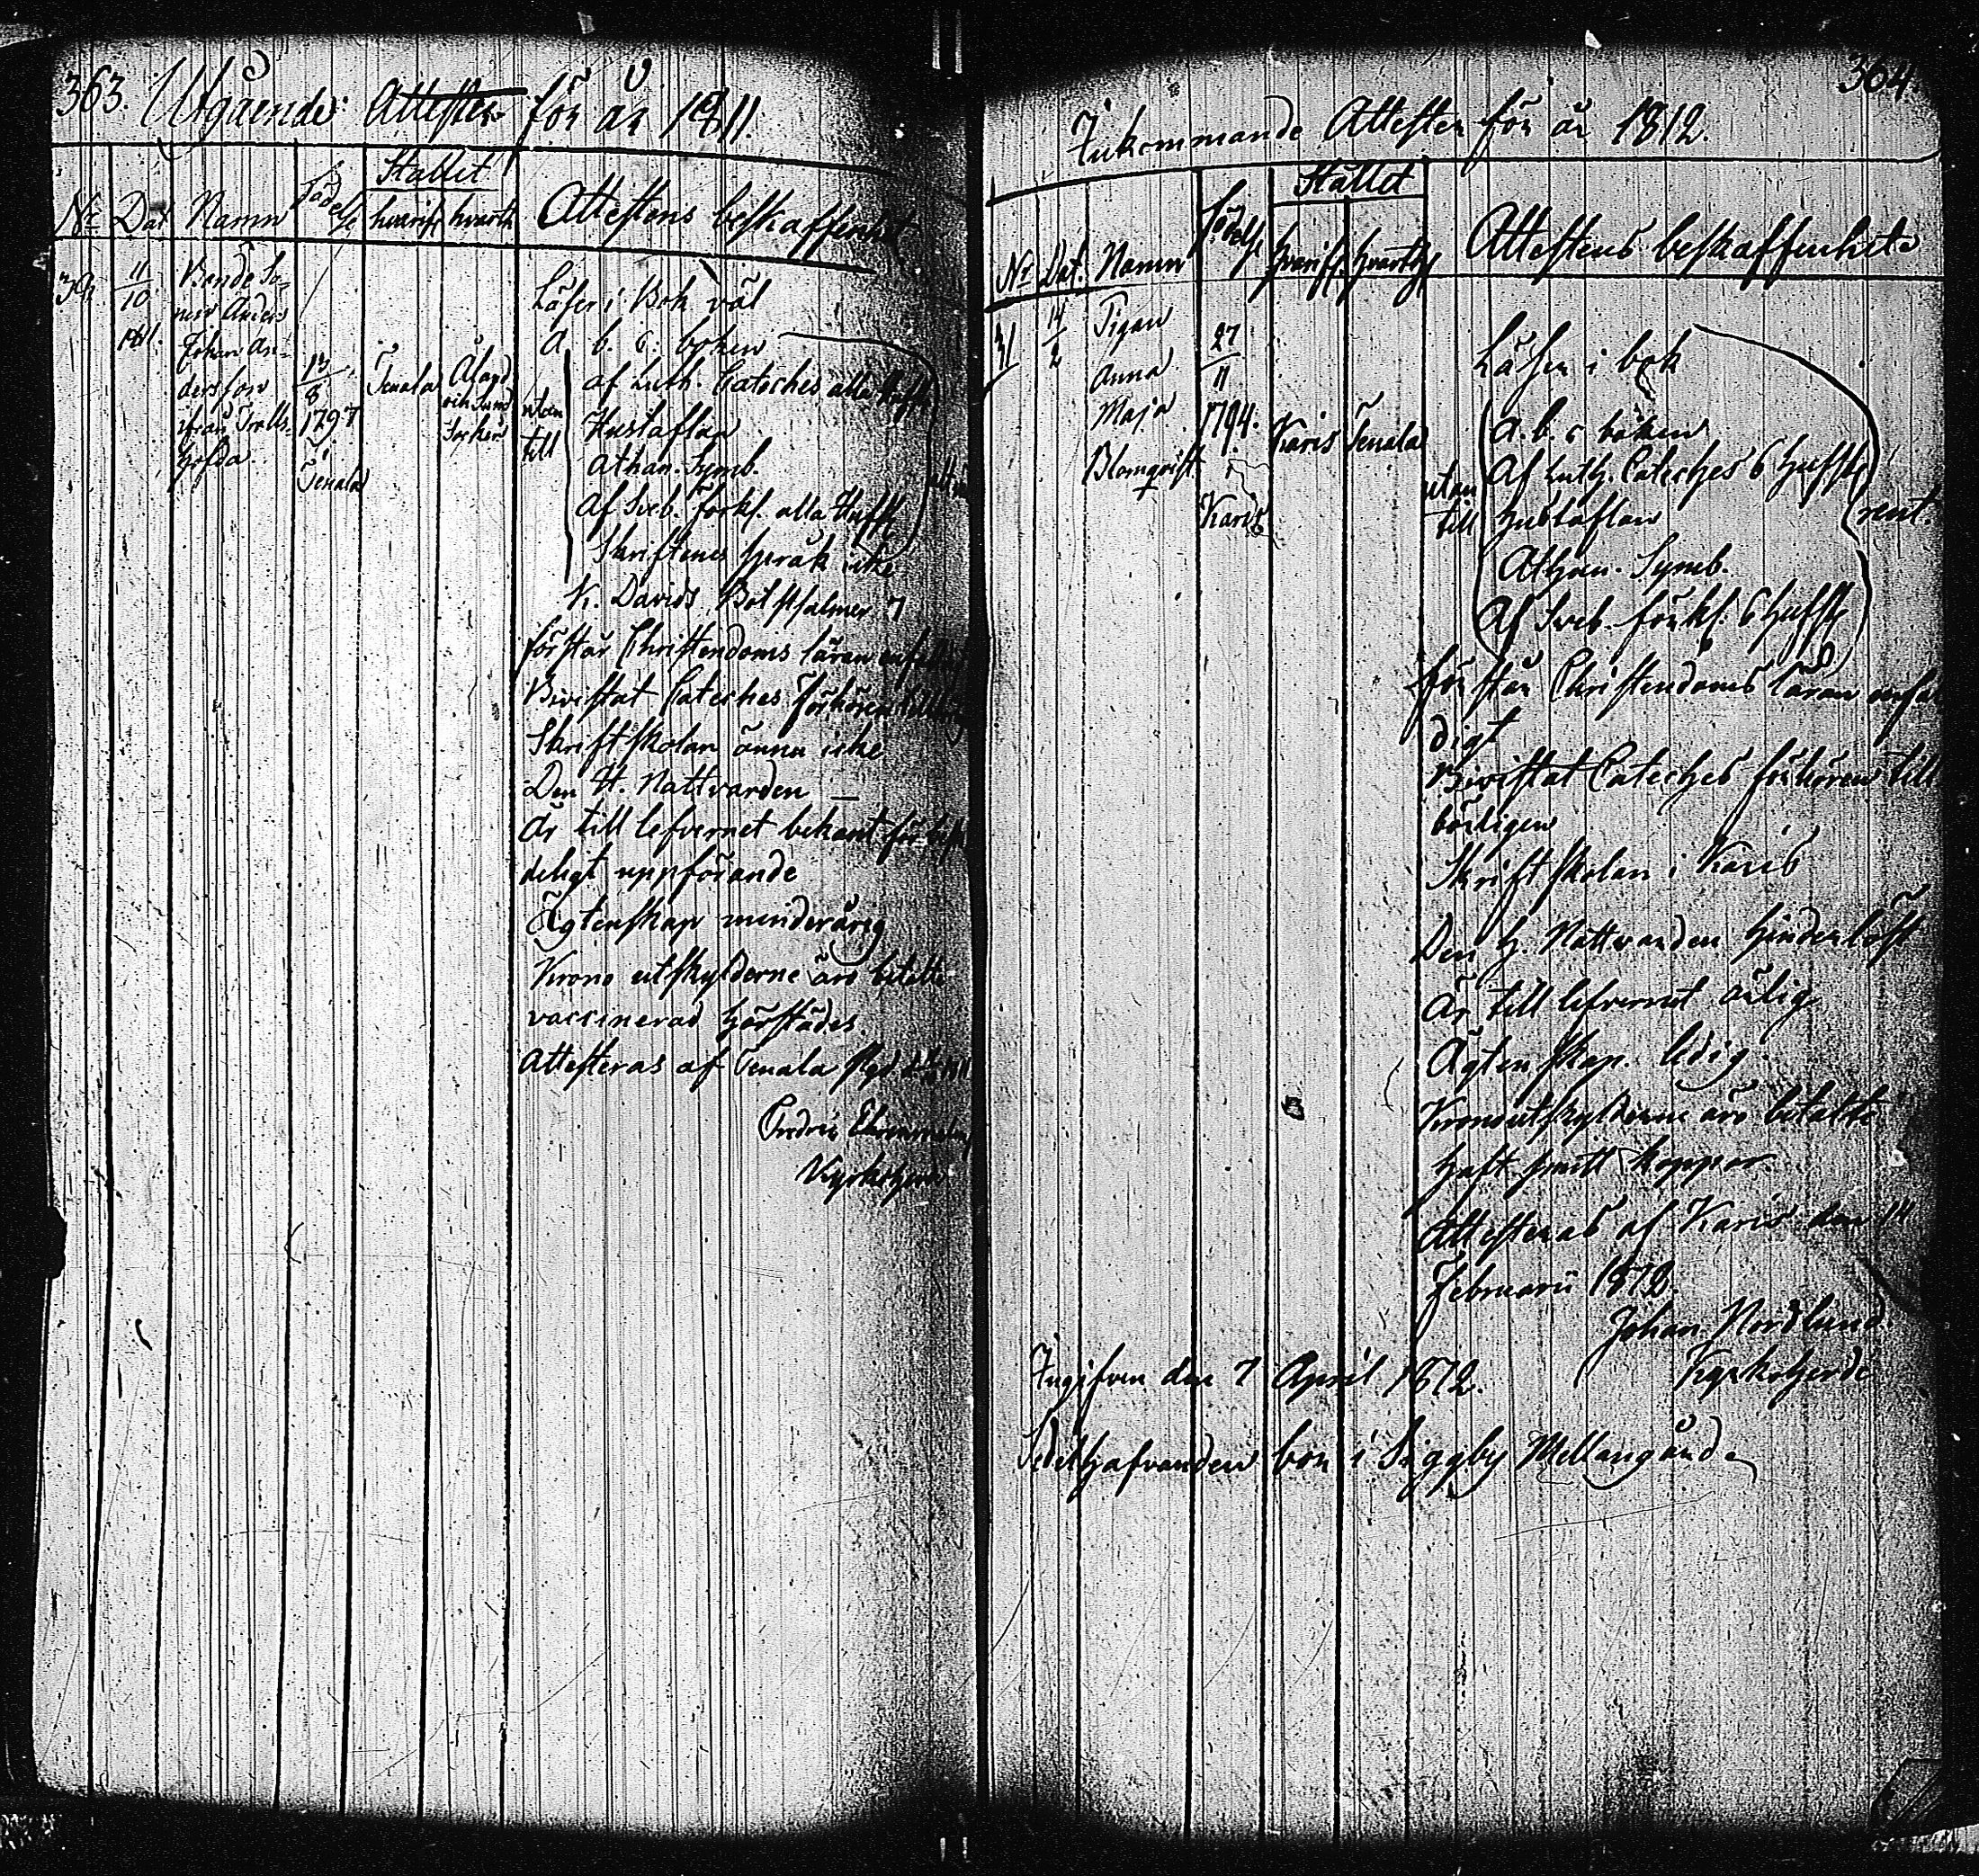 363. Utgående Attester för år 1811.
Stället
No Dat Namn Födelse hvarifr hvarth Attestens beskaffenhet
11
10
1811.
Bonde So-
nen Anders
Johan An-
dersson
från Trolls-
böhla
13
8
1797
i
Tenala
Tenala
Åland
och Sund
Socken
Läser i Bok väl
A. b. c. boken
af Luth. Cateches alla Hufst
utan
till
Hustaflan
Athan. Symb.
Af Sveb. förkl. alla Hufst
Skriftenes språk icke
K. Davids Botpsalmer 7
förstår Christendoms läran
Bivistat Cateches förhören
Skriftskolan ännu icke
Den H. Nattvarden —
Är till lefvernet bekant för
deligt uppförande
Ägtenskap minderårig
Krono utskylderne äro betalte
vaccinerad härstädes.
Attesteras af Tenala
Kyrkoherde
364.
Inkommande Attester för år 1812.
Stället
No Dat. Namn födelse hvarifr hvarth Attestens beskaffenhet
31
14
2
Pigan
Anna
Maja
Blomqvist
27
11
1794.
i
Karis
Karis Tenala
Läser i bok
A. b. c boken
Af Luth. Cateches 6 Hufst
utan
till
Hustaflan
rent.
Athan. Symb.
Af Sveb. förkl. 6 Hufst
förstår Christendoms läran enfal
digt
Bivistat Cateches förhören till
börligen
Skriftskolan i Karis
Den H. Nattvarden hinderlöst
Är till lefvernet ärlig
Ägtenskap. ledig.
Kronoutskylderne äro betalte
Haft smitt koppor.
Attesteras af Karis den 14
Februarii 1812.
Johan Nordlund
Kyrkoherde
Ingifven den 7 April 1812.
Sedelhafvanden bor i Siggby Mellangård